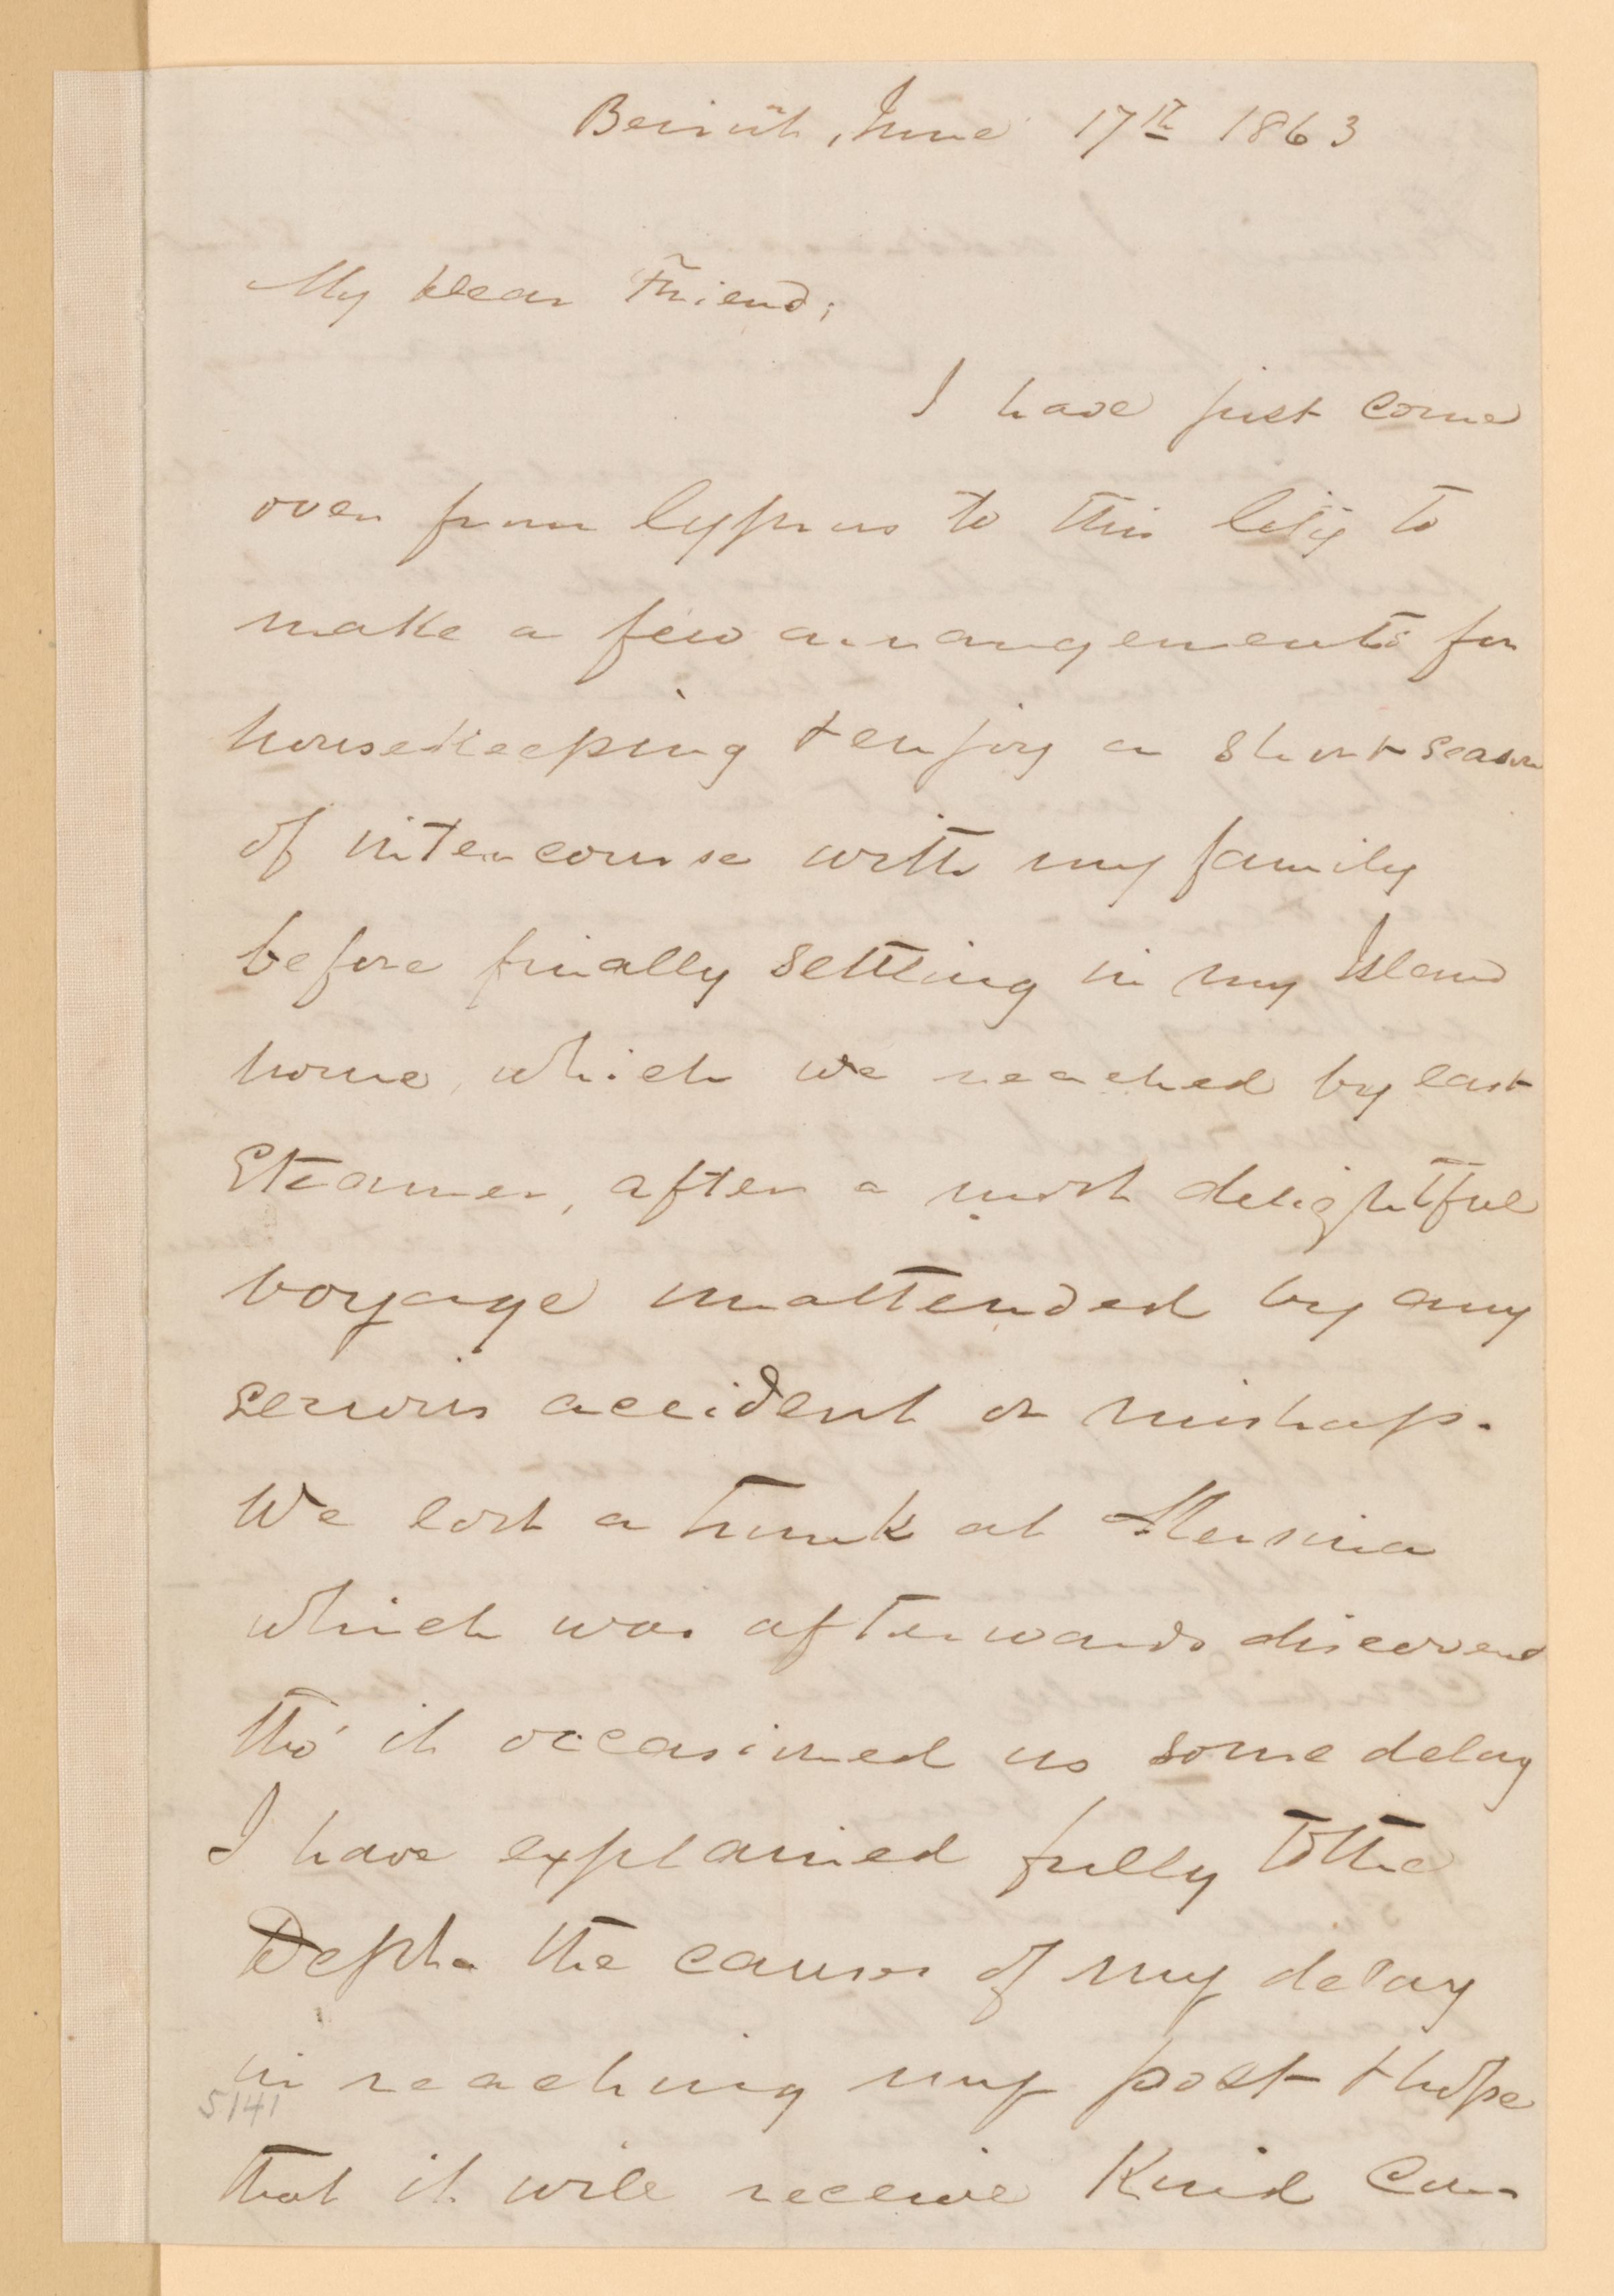 Beirût, June 17th 1863
My dear Friend;
I have just come
over from Cyprus to this City to
make a few arrangements for
housekeeping & enjoy a short season
of intercourse with my family
before finally settling in my Island
home, which we reached by last
Steamer, after a most delightful
voyage unattended by any
serious accident or mishap.
We lost a trunk at Messina
which was afterwards discovered
tho' it occasioned us some delay
I have explained fully to the
Dept. the causes of my delay
in reaching my post & hope
5141
that it will receive kind con-